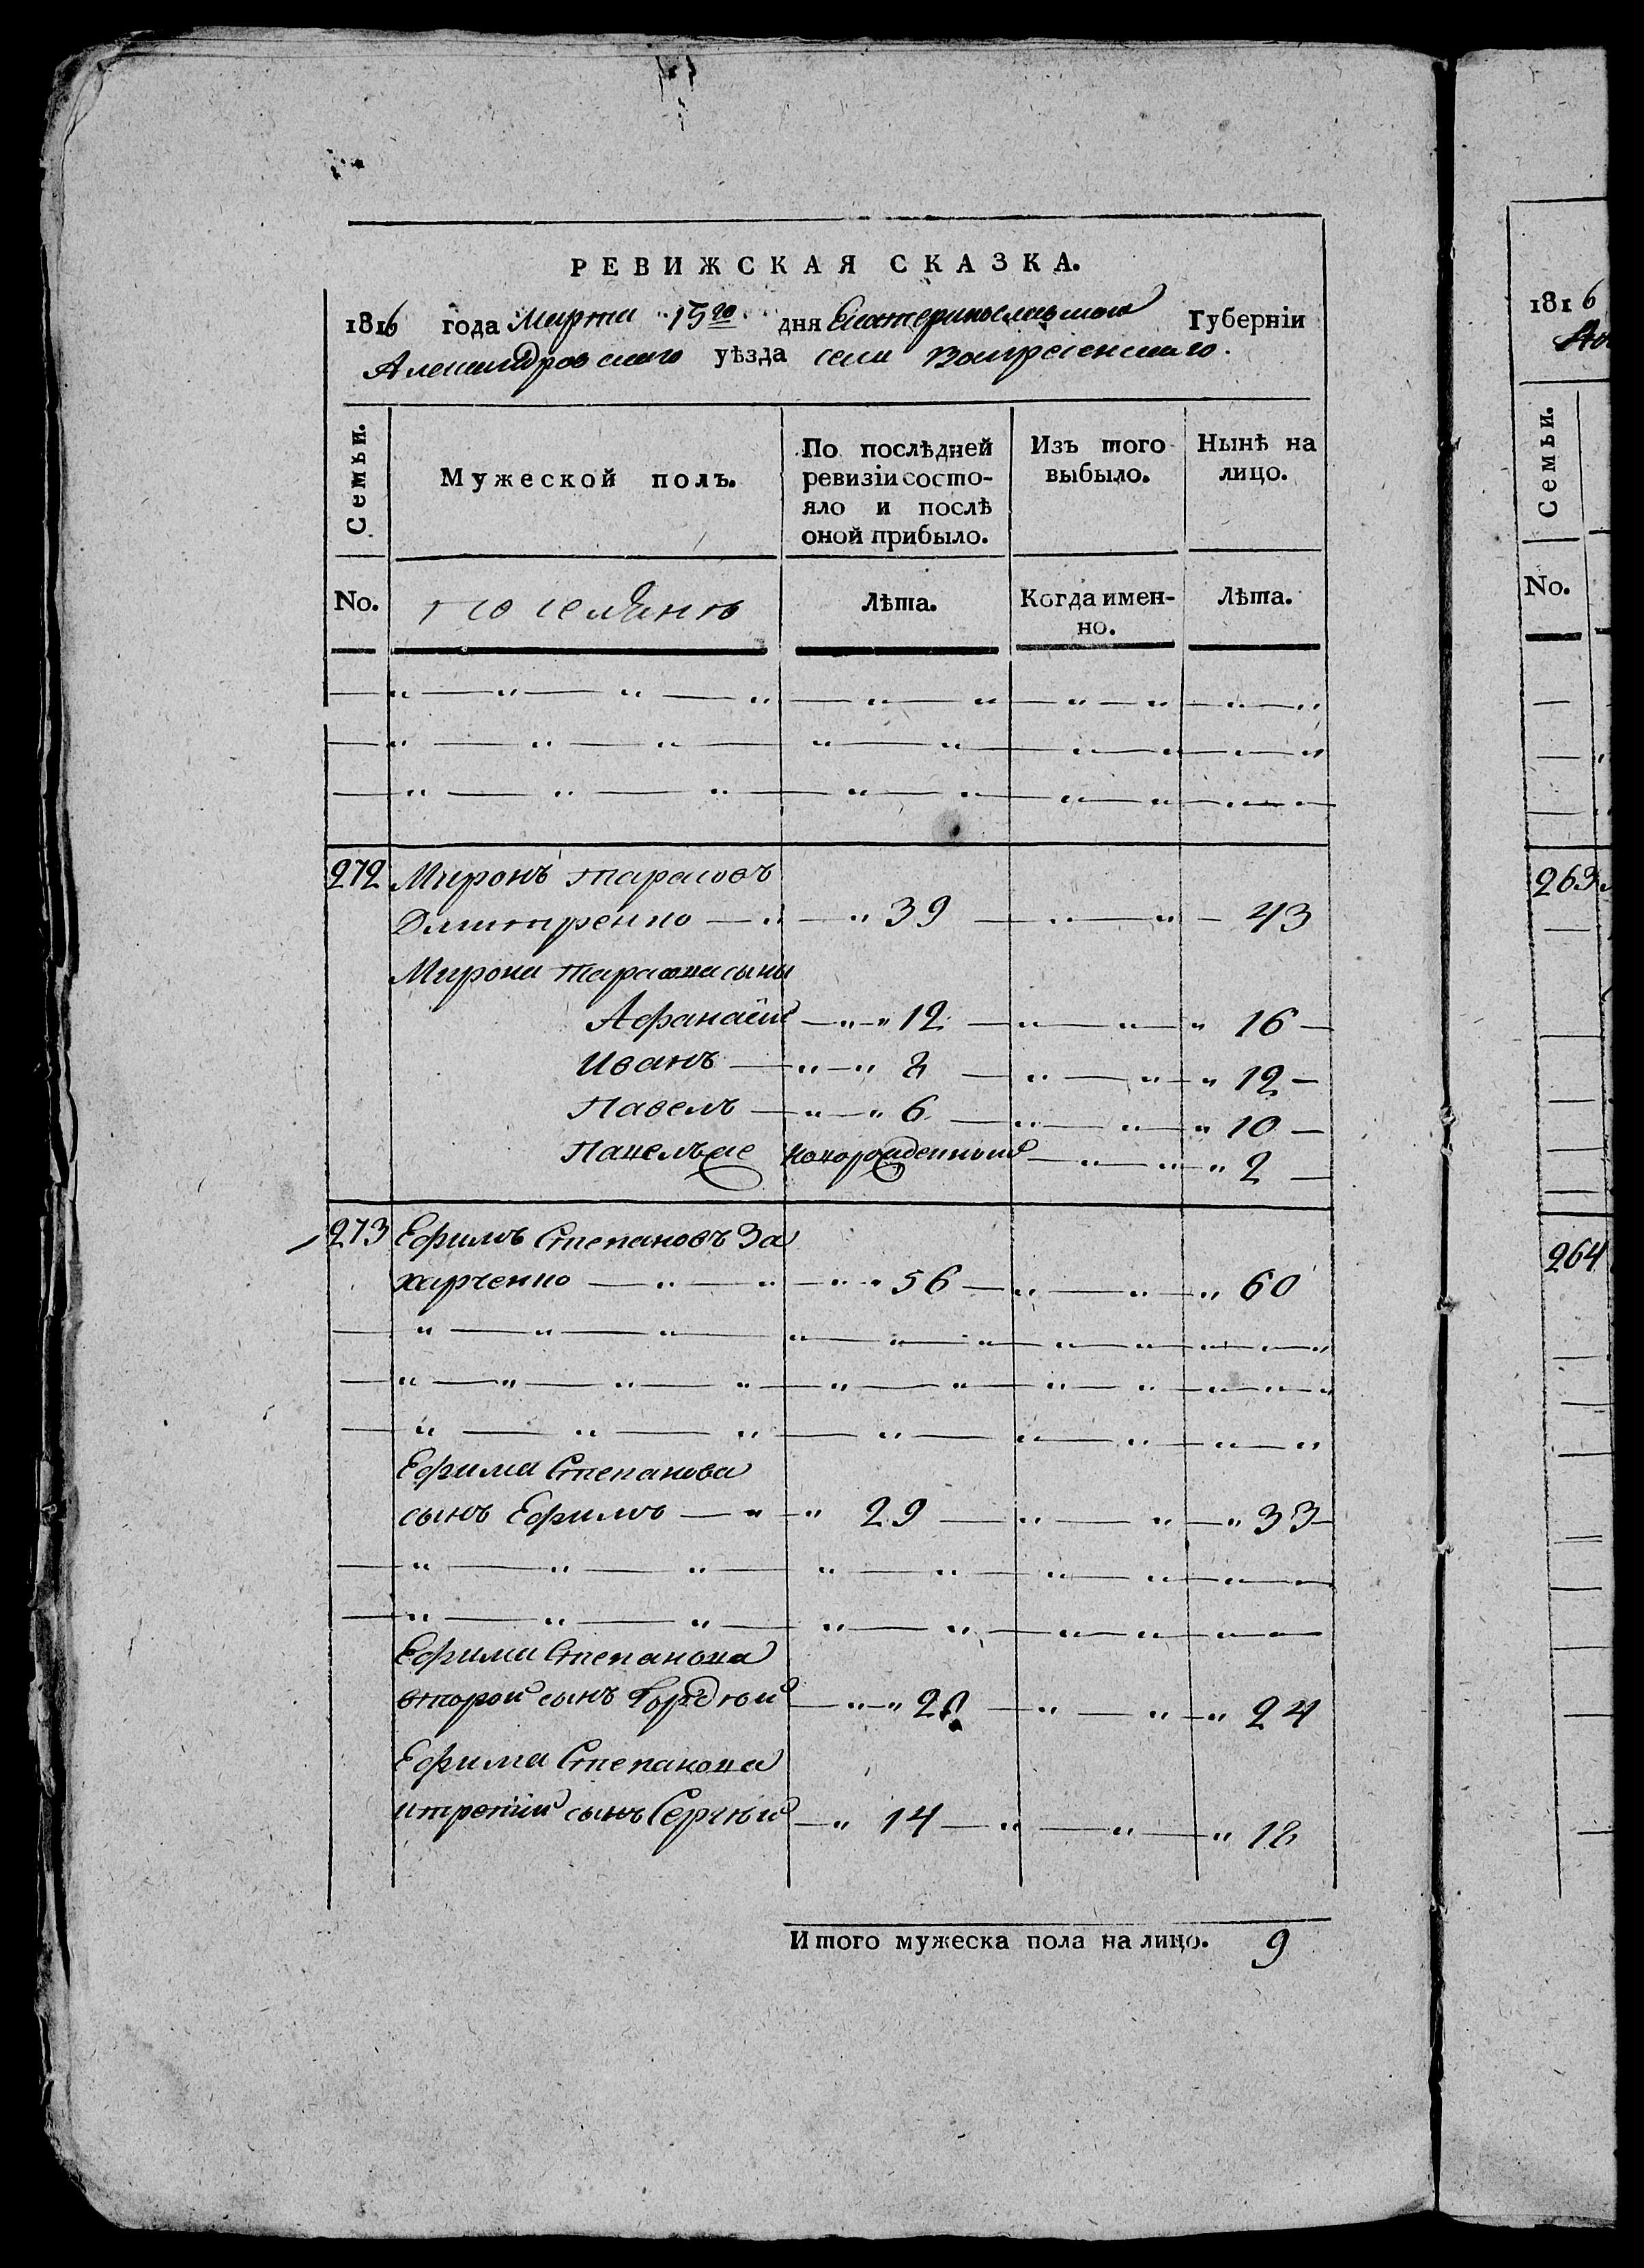 РЕВИЖСКАЯ СКАЗКА.
1816 года Марта 15го дня Екатеринославской Губерніи
Александровскаго уѣзда села Воскресенскаго.
Семьи.
Мужеской полъ.
По послѣдней ревизіи состо-
яло и послѣ
оной прибыло.
Изъ того
выбыло.
Нынѣ на
лицо.
No.
поселяне
Лѣта.
Когда имен-
но.
Лѣта.
272 Миронъ Тарасовъ
Дмитренко 39 43
Мирона Тарасова сыны
Афанасій 12 16
Иванъ 8 12
Павелъ 6 10
новорожденный 2
273 Ефимъ Степановъ За
харченко 56 60
Ефима Степанова
сынъ Ефимъ 29 33
Ефима Степанова
второй сынъ Гордѣй 20 24
Ефима Степанова
третій сынъ Сергѣй 14 18
Итого мужеска пола на лицо. 9
1816
Семьи.
No.
263
264